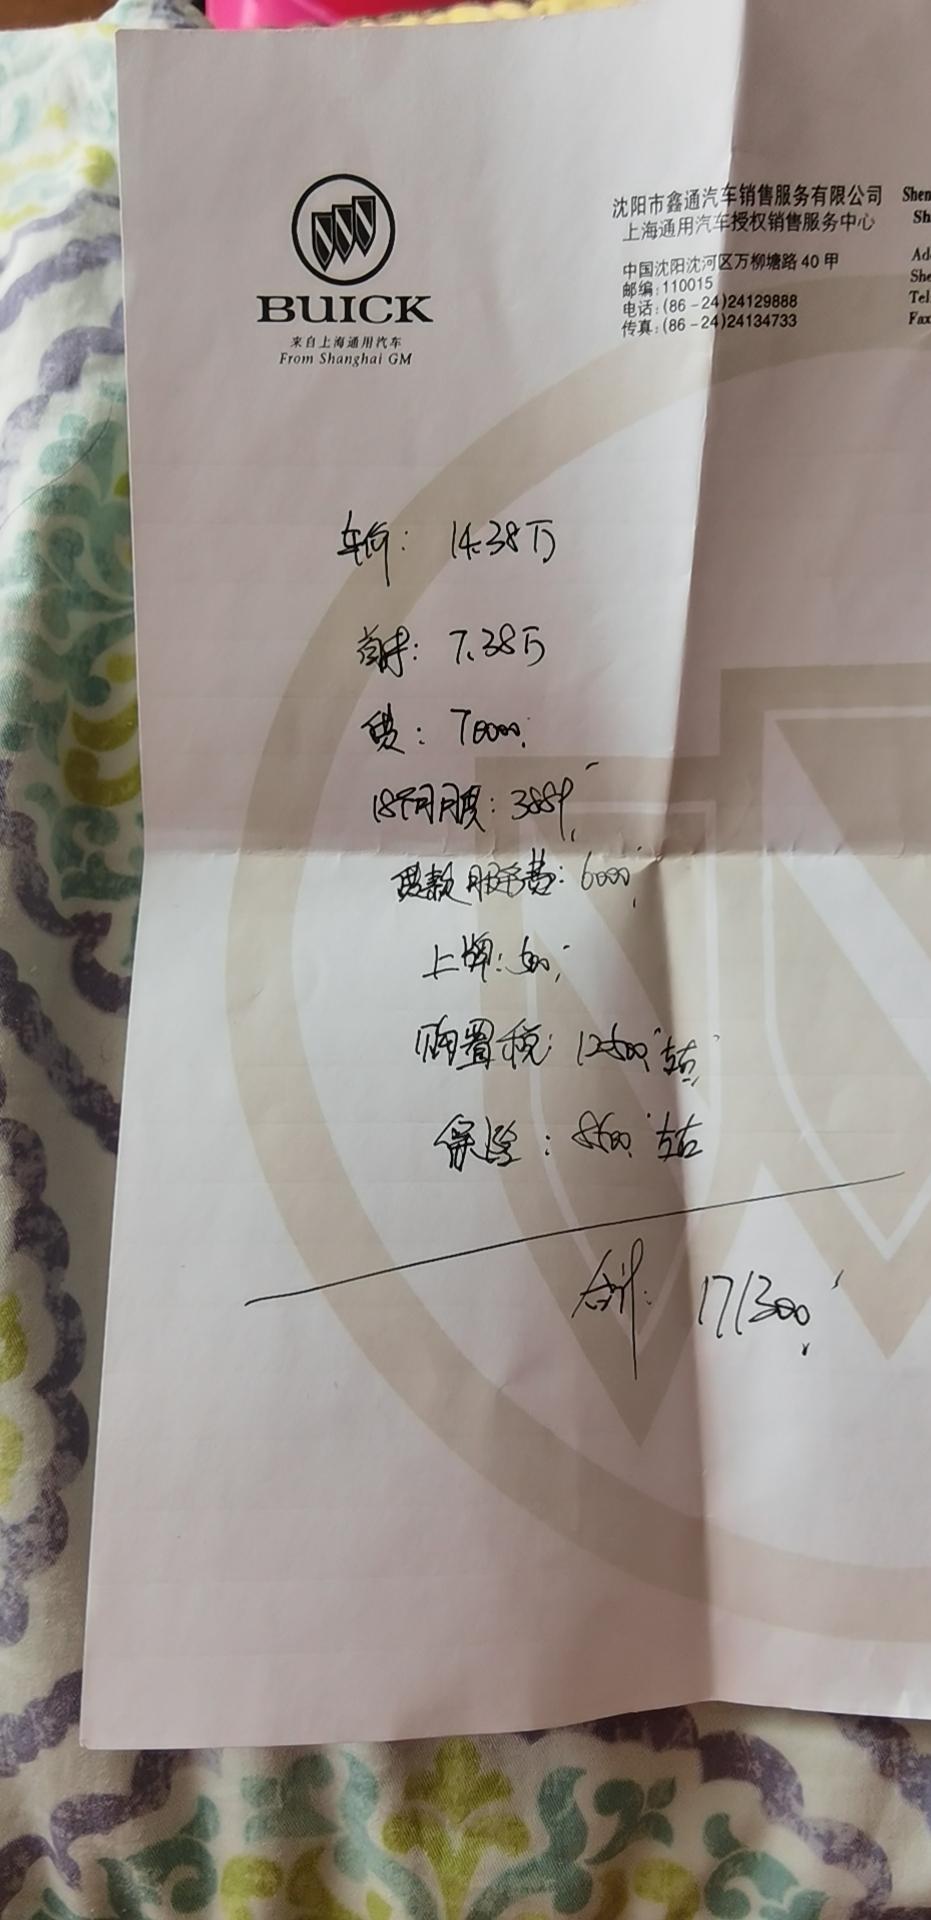 BUICK
来自上海通用汽车
From Shanghai GM
沈阳市鑫通汽车销售服务有限公司
上海通用汽车授权销售服务中心
中国沈阳沈河区万柳塘路 40 甲
邮编:110015
电话:(86-24)24129888
传真:(86-24)24134733
Shen
Sh
Ad
She
Tel
Fax
车价: 14.38万
首付: 7.38万
贷: 70000
18个月 月供: 3889
贷款服务费: 6000
上牌: 500
购置税: 12500 左右
保险: 8500 左右
合计: 171300